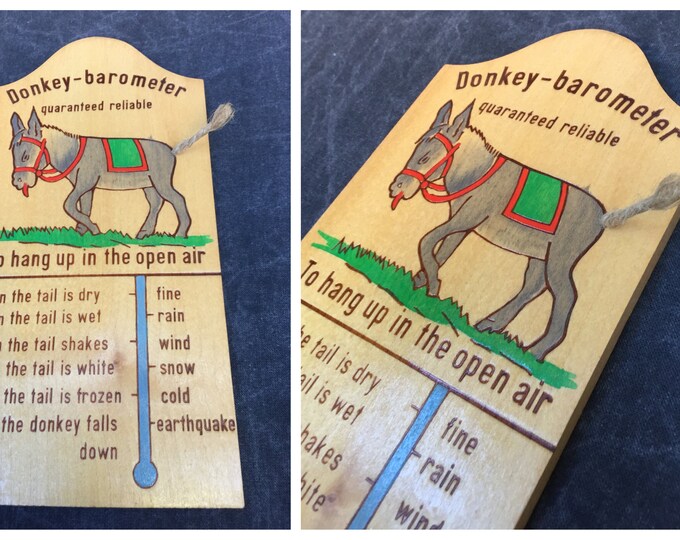 Donkey-barometer
quaranteed reliable
o hang up in the open air
n the tail is dry fine
n the tail is wet rain
n the tail shakes wind
the tail is white snow
the tail is frozen cold
the donkey falls earthquake
down
Donkey-barometer
quaranteed reliable
To hang up in the open air
he tail is dry fine
tail is wet rain
shakes wind
hite